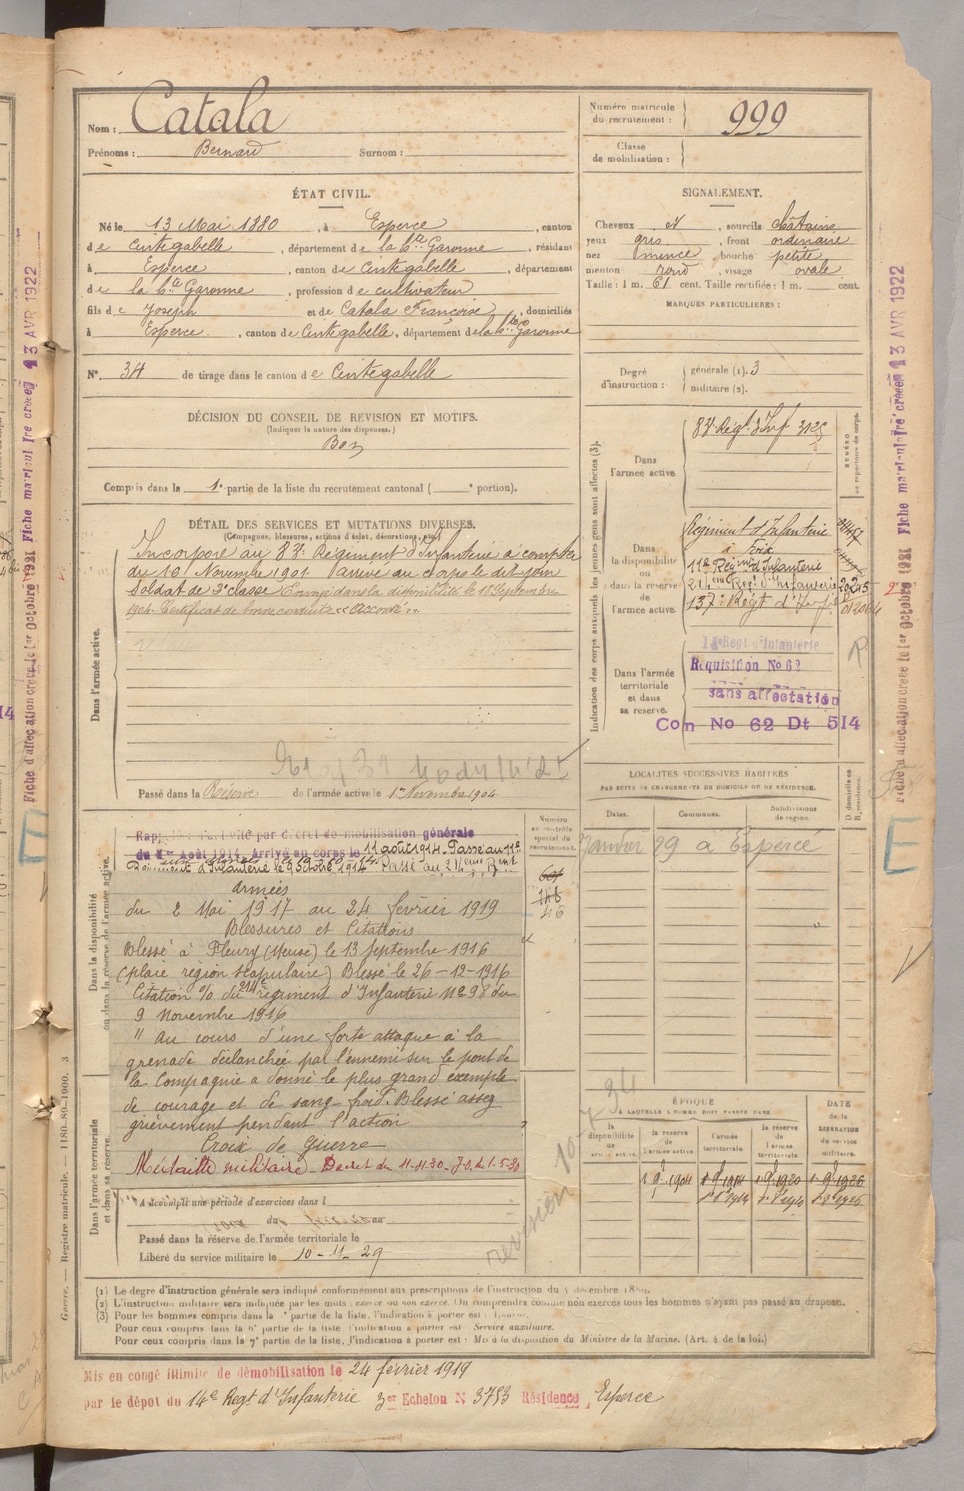 Nom : Catala
Prénoms : Bernard Surnom :
Numéro matricule du recrutement : 999
Classe de mobilisation :
ÉTAT CIVIL.
Né le 13 Mai 1880, à Esperce, canton
de Cintegabelle, département de la hte Garonne, résidant
à Esperce, canton de Cintegabelle, département
de la hte Garonne, profession de cultivateur
fils de Joseph et de Catala Françoise, domiciliés
à Esperce, canton de Cintegabelle, département de la hte Garonne
N° 34 de tirage dans le canton de Cintegabelle
SIGNALEMENT.
Cheveux et, sourcils châtains
yeux gris, front ordinaire
nez mince, bouche petite
menton rond, visage ovale
Taille : 1 m. 61 cent. Taille rectifiée : 1 m. cent.
MARQUES PARTICULIÈRES :
Degré d'instruction : générale (1). 3
militaire (2).
DÉCISION DU CONSEIL DE REVISION ET MOTIFS.
(Indiquer la nature des dispenses.)
Bon
Compris dans la 1e partie de la liste du recrutement cantonal ( e portion).
DÉTAIL DES SERVICES ET MUTATIONS DIVERSES.
(Campagnes, blessures, actions d'éclat, décorations, etc.)
Incorporé au 83e Régiment d'Infanterie à compter
du 16 Novembre 1901 Arrivé au corps le dit jour
Soldat de 2e classe Envoyé dans la disponibilité le 18 Septembre
1904. Certificat de bonne conduite "Accordé".
Dans l'armée active.
Passé dans la Réserve de l'armée active le 1er Novembre 1904
Indication des corps auxquels les jeunes gens sont affectés (3).
Dans l'armée active.
83e Régt d'Inf
NUMÉRO au répertoire du corps.
Dans la disponibilité ou dans la réserve de l'armée active.
Régiment d'Infanterie
à Foix
11e Régim d'Infanterie
214eme Reg. d'Infanterie 20265
137e Régt d'Inf 012064
Dans l'armée territoriale et dans sa réserve.
14eRegt d'Infanterie
Requisition No 62
sans affectation
Con No 62 Dt 514
LOCALITÉS SUCCESSIVES HABITÉES
PAR SUITE DE CHANGEMENTS DE DOMICILE OU DE RÉSIDENCE.
Dates. Communes. Subdivisions de région. D domicile ou R résidence.
Janvier 29 à Esperce
Numéro au contrôle spécial du recrutement.
148
46
Dans la disponibilité ou dans la réserve de l'armée active.
Rappelé à l'activité par décret de mobilisation générale
du 1er Août 1914, arrivé au corps le 11 août 1914. Passé au 11e
Régiment d'Infanterie le 9 octobre 1914 Passé au 214eme Rgnt
armées
du 2 Mai 1917 au 24 février 1919
Blessures et Citations
Blessé à Fleury (Meuse) le 13 Septembre 1916
(plaie région scapulaire) Blessé le 26-12-1916
Citation % du 214e régiment d'Infanterie N° 98 du
9 Novembre 1916
" Au cours d'une forte attaque à la
grenade déclanchée par l'ennemi sur le pont de
la Compagnie a donné le plus grand exemple
de courage et de sang-froid. Blessé assez
grièvement pendant l'action
Croix de Guerre
Médaille militaire - Décret du 11-11-30 - J.O. d. 1-5-30
Dans l'armée territoriale et dans sa réserve.
A accompli une période d'exercices dans l
du au
Passé dans la réserve de l'armée territoriale le
Libéré du service militaire le 10-11-29
revision 10-7-34
ÉPOQUE
À LAQUELLE L'HOMME DOIT PASSER DANS
la disponibilité de l'armée active. la réserve de l'armée active. l'armée territoriale. la réserve de l'armée territoriale.
DATE de la LIBÉRATION du service militaire.
1 9bre 1904 1 9bre 1914 1 9bre 1920 1 9bre 1926
(1) Le degré d'instruction générale sera indiqué conformément aux prescriptions de l'instruction du 4 décembre 1889.
(2) L'instruction militaire sera indiquée par les mots : exercé ou non exercé. On comprendra comme non exercés tous les hommes n'ayant pas passé au drapeau.
(3) Pour les hommes compris dans la e partie de la liste, l'indication à porter est :
Pour ceux compris dans la 6e partie de la liste l'indication à porter est Service auxiliaire.
Pour ceux compris dans la 7e partie de la liste, l'indication à porter est : Mis à la disposition du Ministre de la Marine. (Art. 4 de la loi.)
Mis en congé illimité de démobilisation le 24 février 1919
par le dépot du 14e Regt d'Infanterie 3er Echelon N 3753 Résidence, Esperce
Guerre. — Registre matricule. — 1180-89-1900. 3
Fiche d'affectation créée le 1er Octobre 1921 Fiche matricule créée 13 AVR 1922
Fiche d'affectation créée le 1er Octobre 1921 Fiche matricule créée 13 AVR 1922
E
E